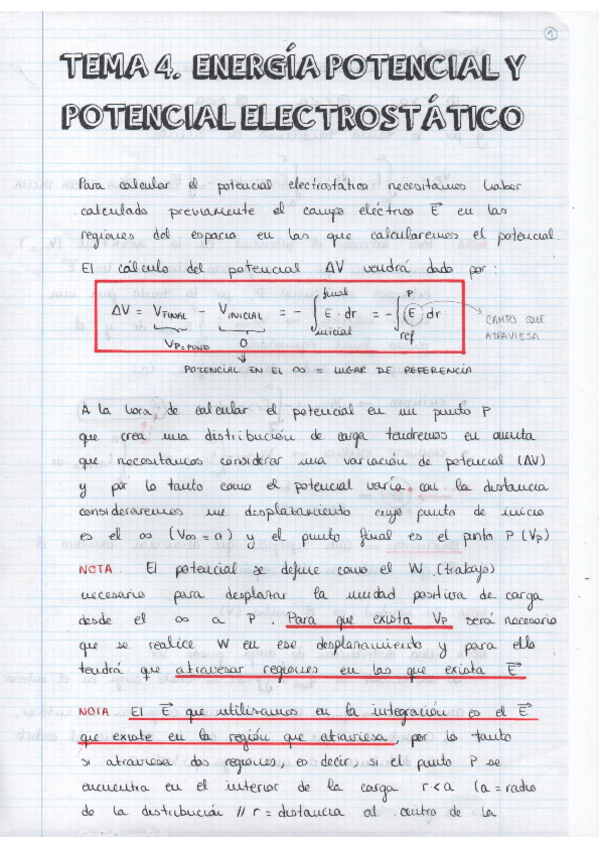 1
TEMA 4. ENERGÍA POTENCIAL Y
POTENCIAL ELECTROSTÁTICO
Para calcular el potencial electrostático necesitamos haber
calculado previamente el campo eléctrico E⃗ en las
regiones del espacio en las que calcularemos el potencial.
El cálculo del potencial ΔV vendrá dado por:
ΔV = V_FINAL - V_INICIAL = - ∫_inicial^final E · dr = - ∫_ref^P E dr
CAMPO QUE ATRAVIESA
0
POTENCIAL EN EL ∞ = LUGAR DE REFERENCIA
A la hora de calcular el potencial en un punto P
que crea una distribución de carga tendremos en cuenta
que necesitamos considerar una variación de potencial (ΔV)
y por lo tanto como el potencial varía con la distancia
consideraremos un desplazamiento cuyo punto de inicio
es el ∞ (V∞ = 0) y el punto final es el punto P (Vp)
NOTA El potencial se define como el W (trabajo)
necesario para desplazar la unidad positiva de carga
desde el ∞ a P. Para que exista Vp será necesario
que se realice W en ese desplazamiento y para ello
tendrá que atravesar regiones en las que exista E⃗
NOTA El E⃗ que utilizamos en la integración es el E⃗
que existe en la región que atraviesa, por lo tanto
si atraviesa dos regiones, es decir, si el punto P se
encuentra en el interior de la carga r < a (a = radio
de la distribución // r = distancia al centro de la